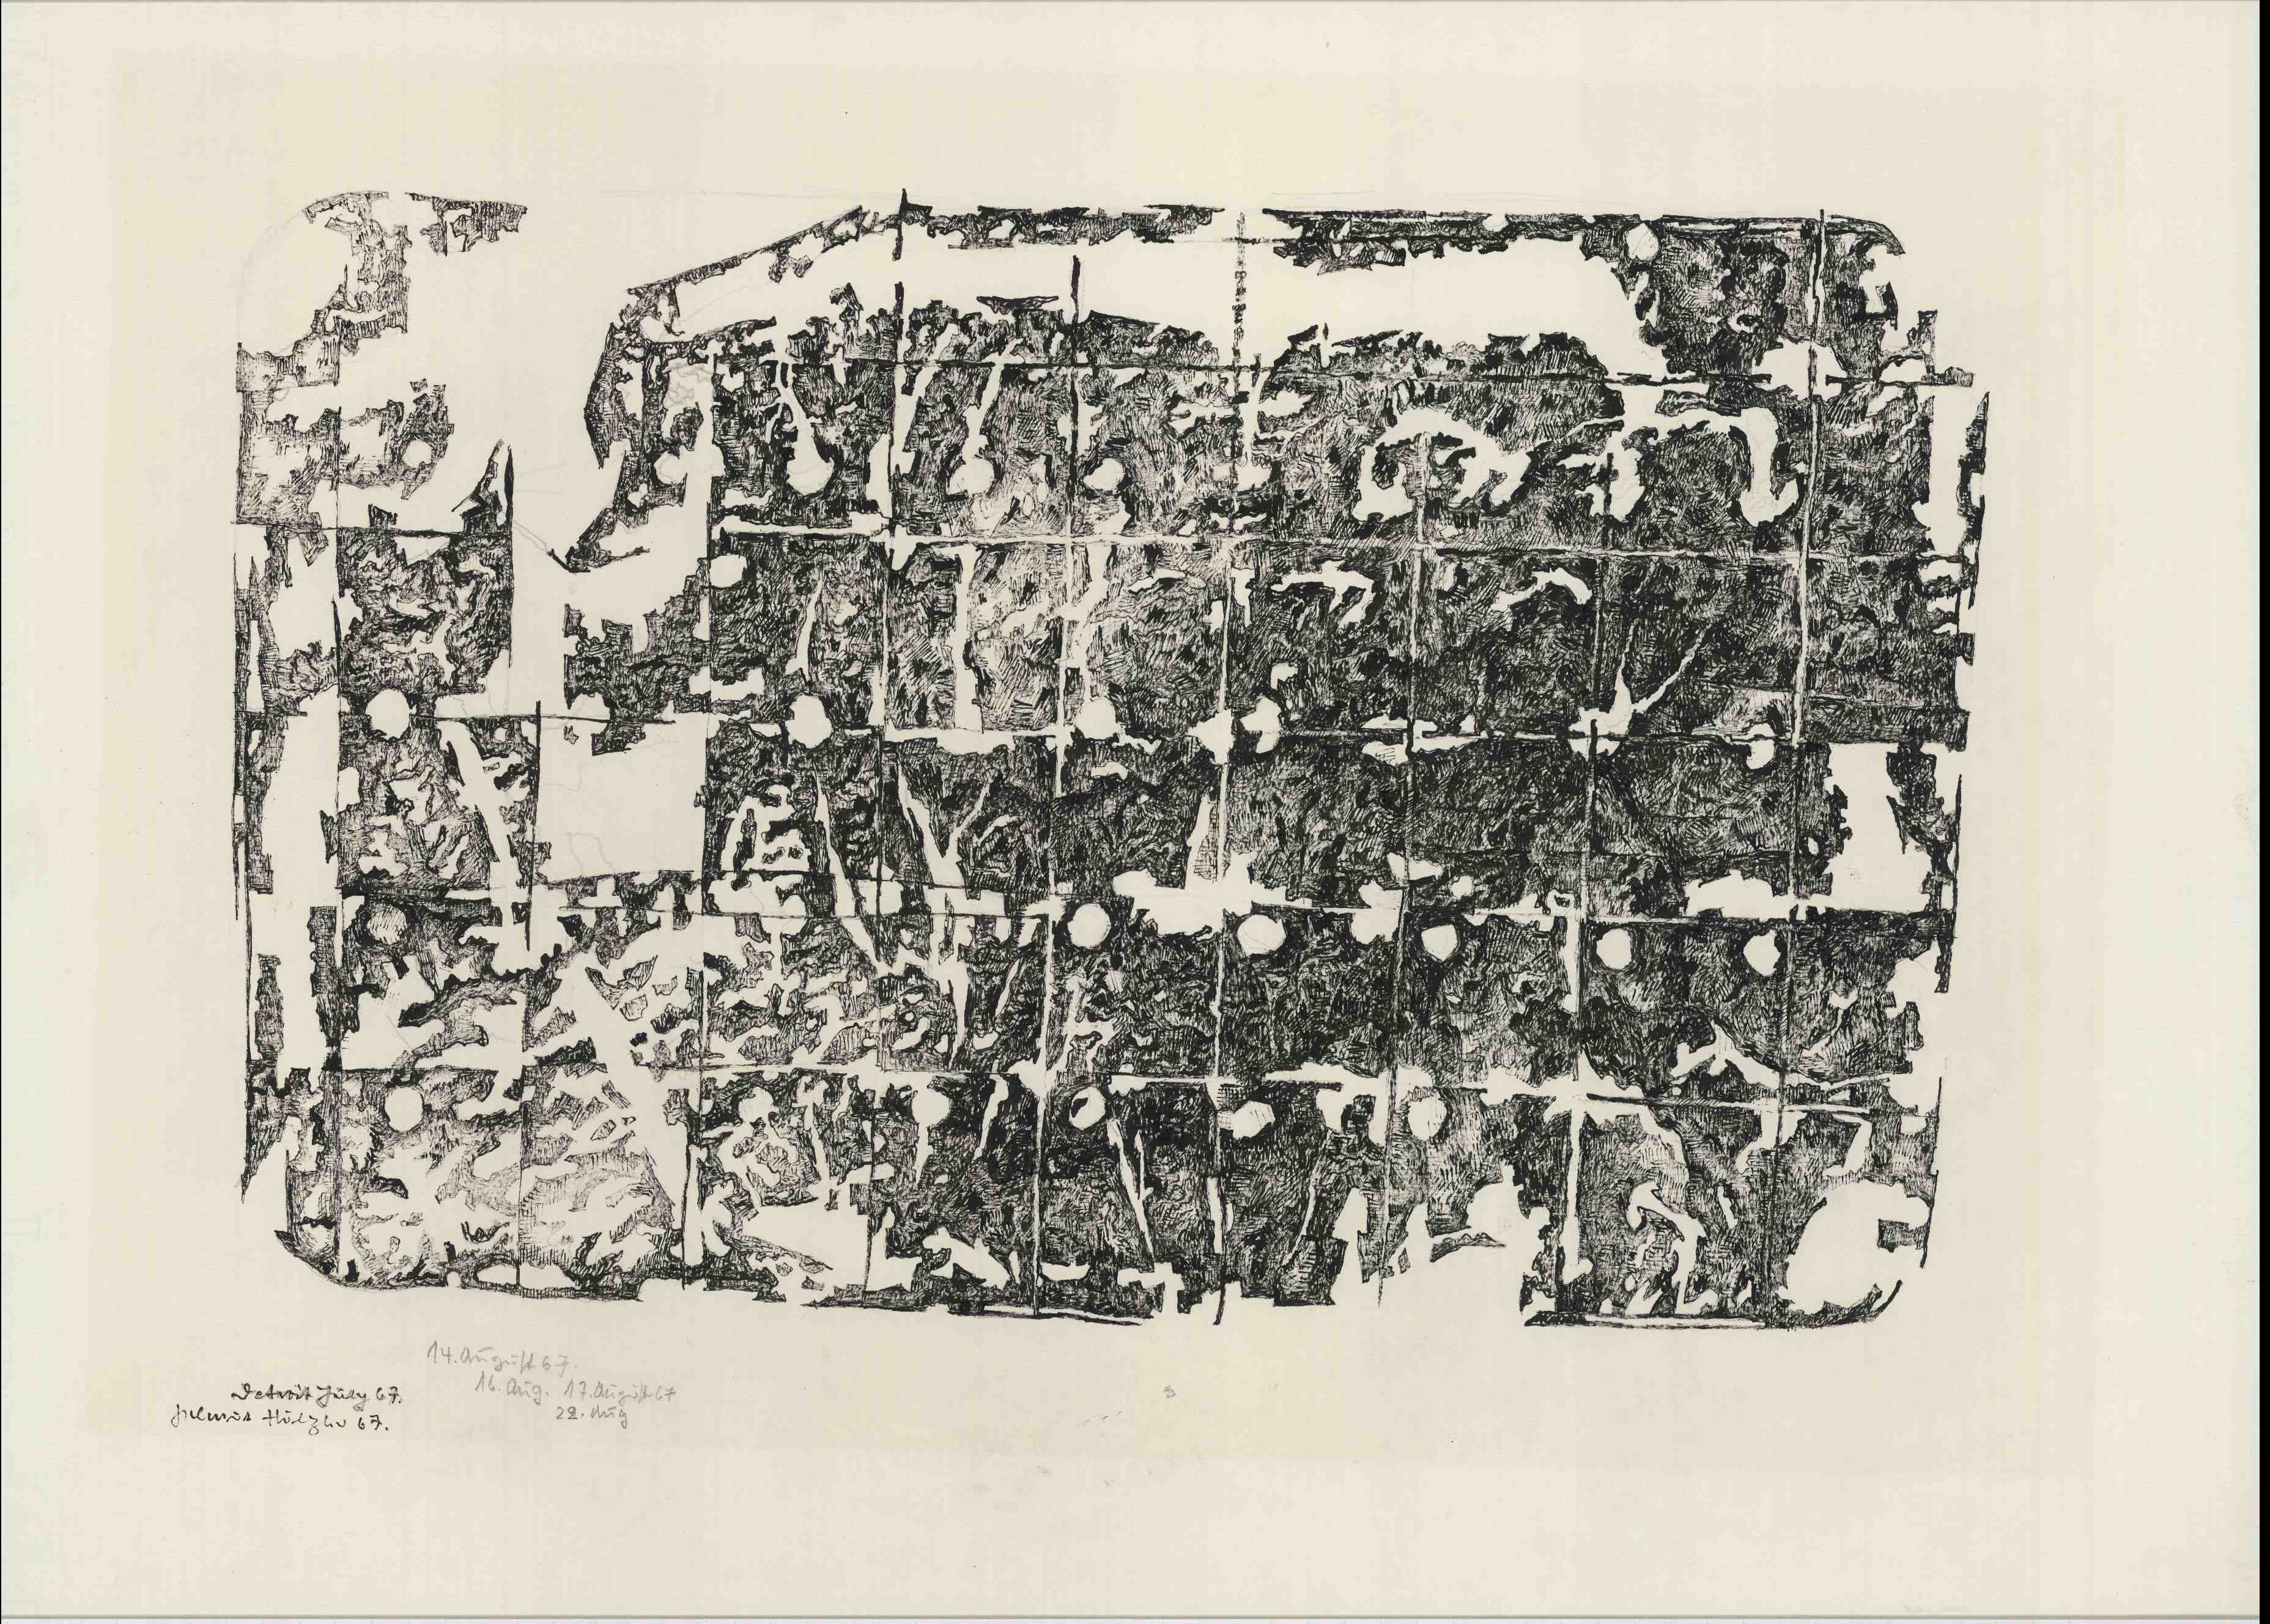 14. August 67.
16. Aug. 17. August 67
22. Aug
Detroit July 67.
67.